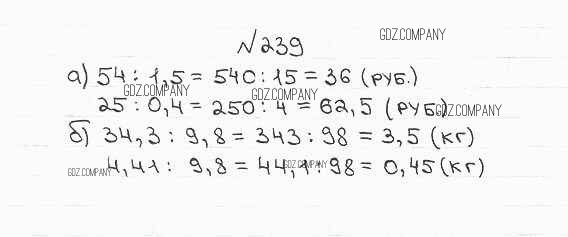 №239
GDZ.COMPANY
а) 54 : 1,5 = 540 : 15 = 36 (руб.)
GDZ.COMPANY
GDZ.COMPANY
25 : 0,4 = 250 : 4 = 62,5 (руб)
GDZ.COMPANY
б) 34,3 : 9,8 = 343 : 98 = 3,5 (кг)
4,41 : 9,8 = 44,1 : 98 = 0,45 (кг)
GDZ.COMPANY
GDZ.COMPANY